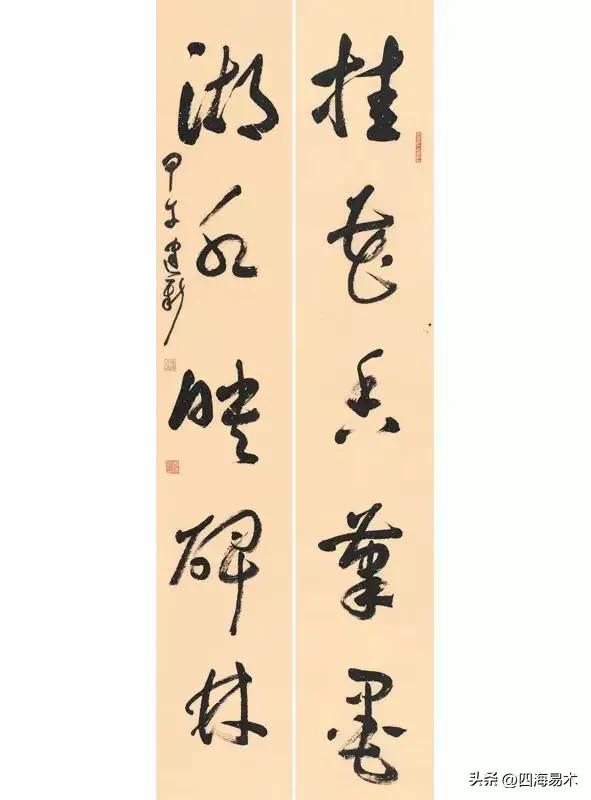 桂花香筆墨
湖水映碑林
甲午建新
头条 @四海易木